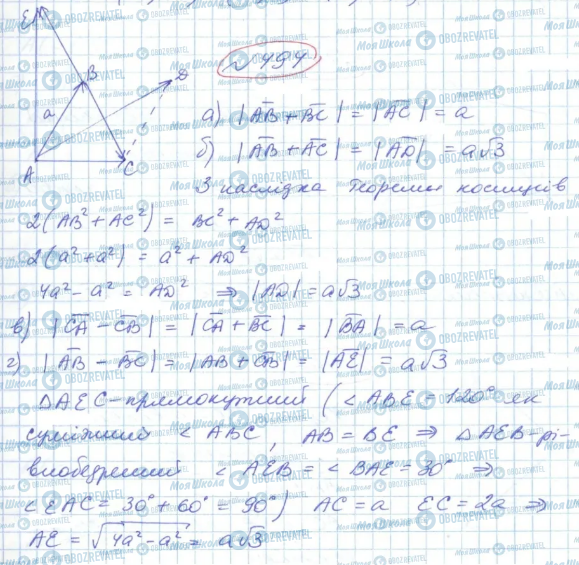 № 494
E
B
D
a
A
C
а) |AB̅ + BC̅| = |AC̅| = a
б) |AB̅ + AC̅| = |AD̅| = a√3
З наслідка теореми косинусів
2(AB² + AC²) = BC² + AD²
2(a² + a²) = a² + AD²
4a² - a² = AD² ⇒ |AD| = a√3
в) |CA̅ - CB̅| = |CA̅ + BC̅| = |BA̅| = a
г) |AB̅ - BC̅| = |AB + CB̅| = |AE̅| = a√3
ΔAEC-прямокутний (<ABE = 120° як
суміжний <ABC, AB = BE ⇒ ΔAEB-рі-
внобедрений <AEB = <BAE = 30° ⇒
<EAC = 30° + 60° = 90°) AC = a EC = 2a ⇒
AE = √4a² - a² = a√3
Моя Школа
OBOZREVATEL